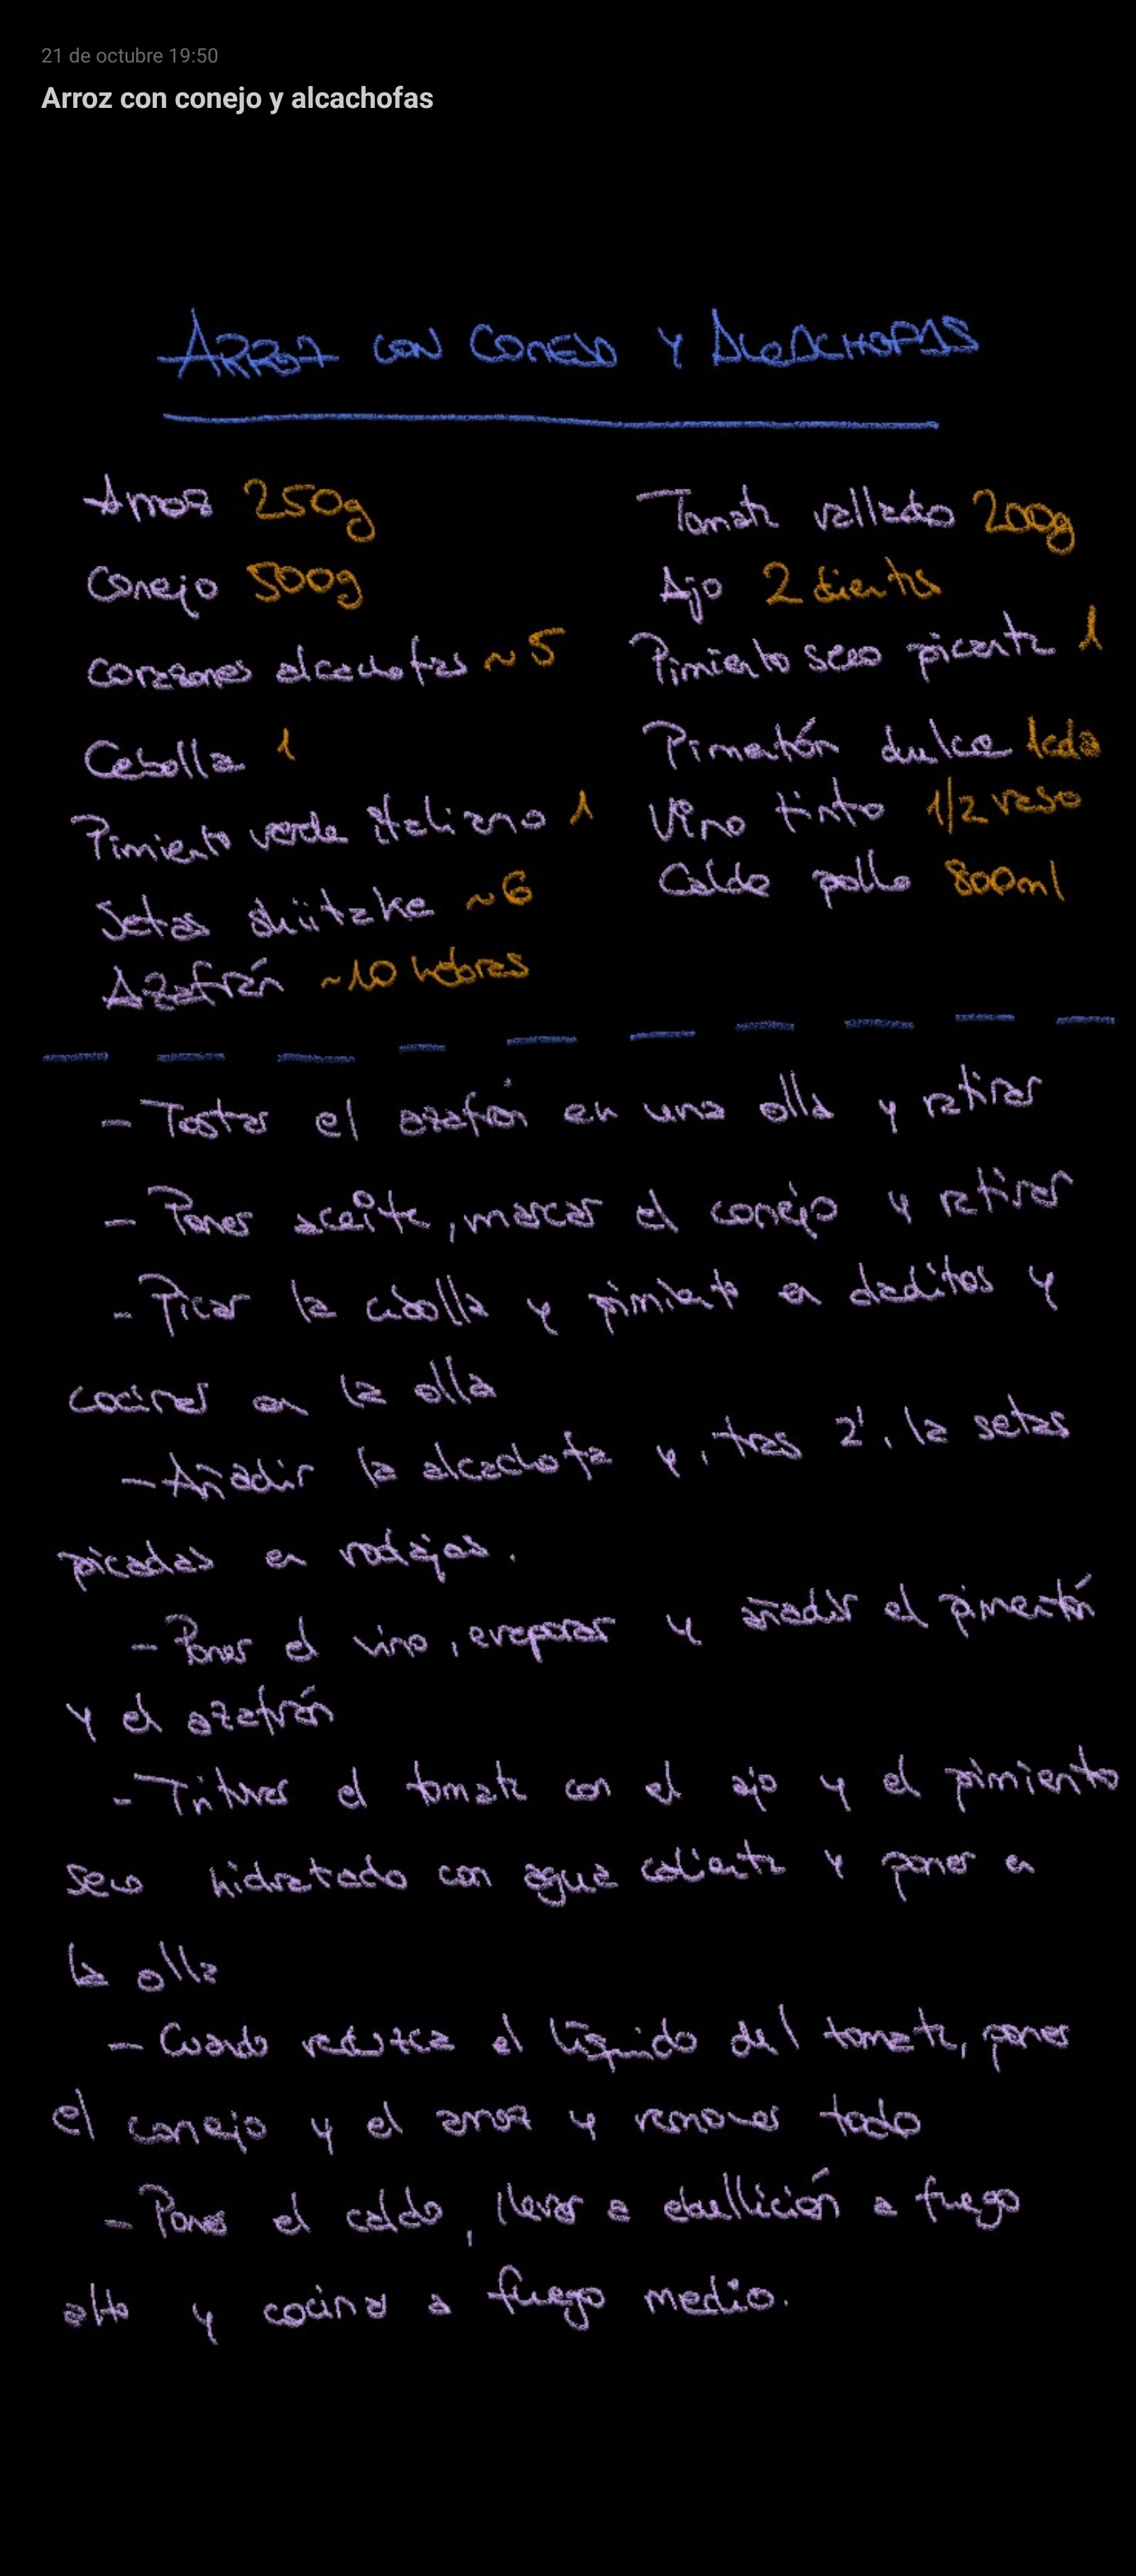 21 de octubre 19:50
Arroz con conejo y alcachofas
ARROZ CON CONEJO Y ALCACHOFAS
Arroz 250g
Conejo 500g
Corazones alcachofas ~5
Cebolla 1
Pimiento verde italiano 1
Setas shiitake ~6
Azafrán ~10 hebras
Tomate rallado 200g
Ajo 2 dientes
Pimiento seco picante 1
Pimentón dulce 1cda
Vino tinto 1/2 vaso
Caldo pollo 800ml
- Tostar el azafrán en una olla y retirar
- Poner aceite, marcar el conejo y retirar
- Picar la cebolla y pimiento en daditos y
cocinar en la olla
- Añadir la alcachofa y, tras 2', la setas
picadas en rodajas.
- Poner el vino, evaporar y añadir el pimentón
y el azafrán
- Triturar el tomate con el ajo y el pimiento
seco hidratado con agua caliente y poner en
la olla
- Cuando reduzca el líquido del tomate, poner
el conejo y el arroz y remover todo
- Poner el caldo, llevar a ebullición a fuego
alto y cocinar a fuego medio.